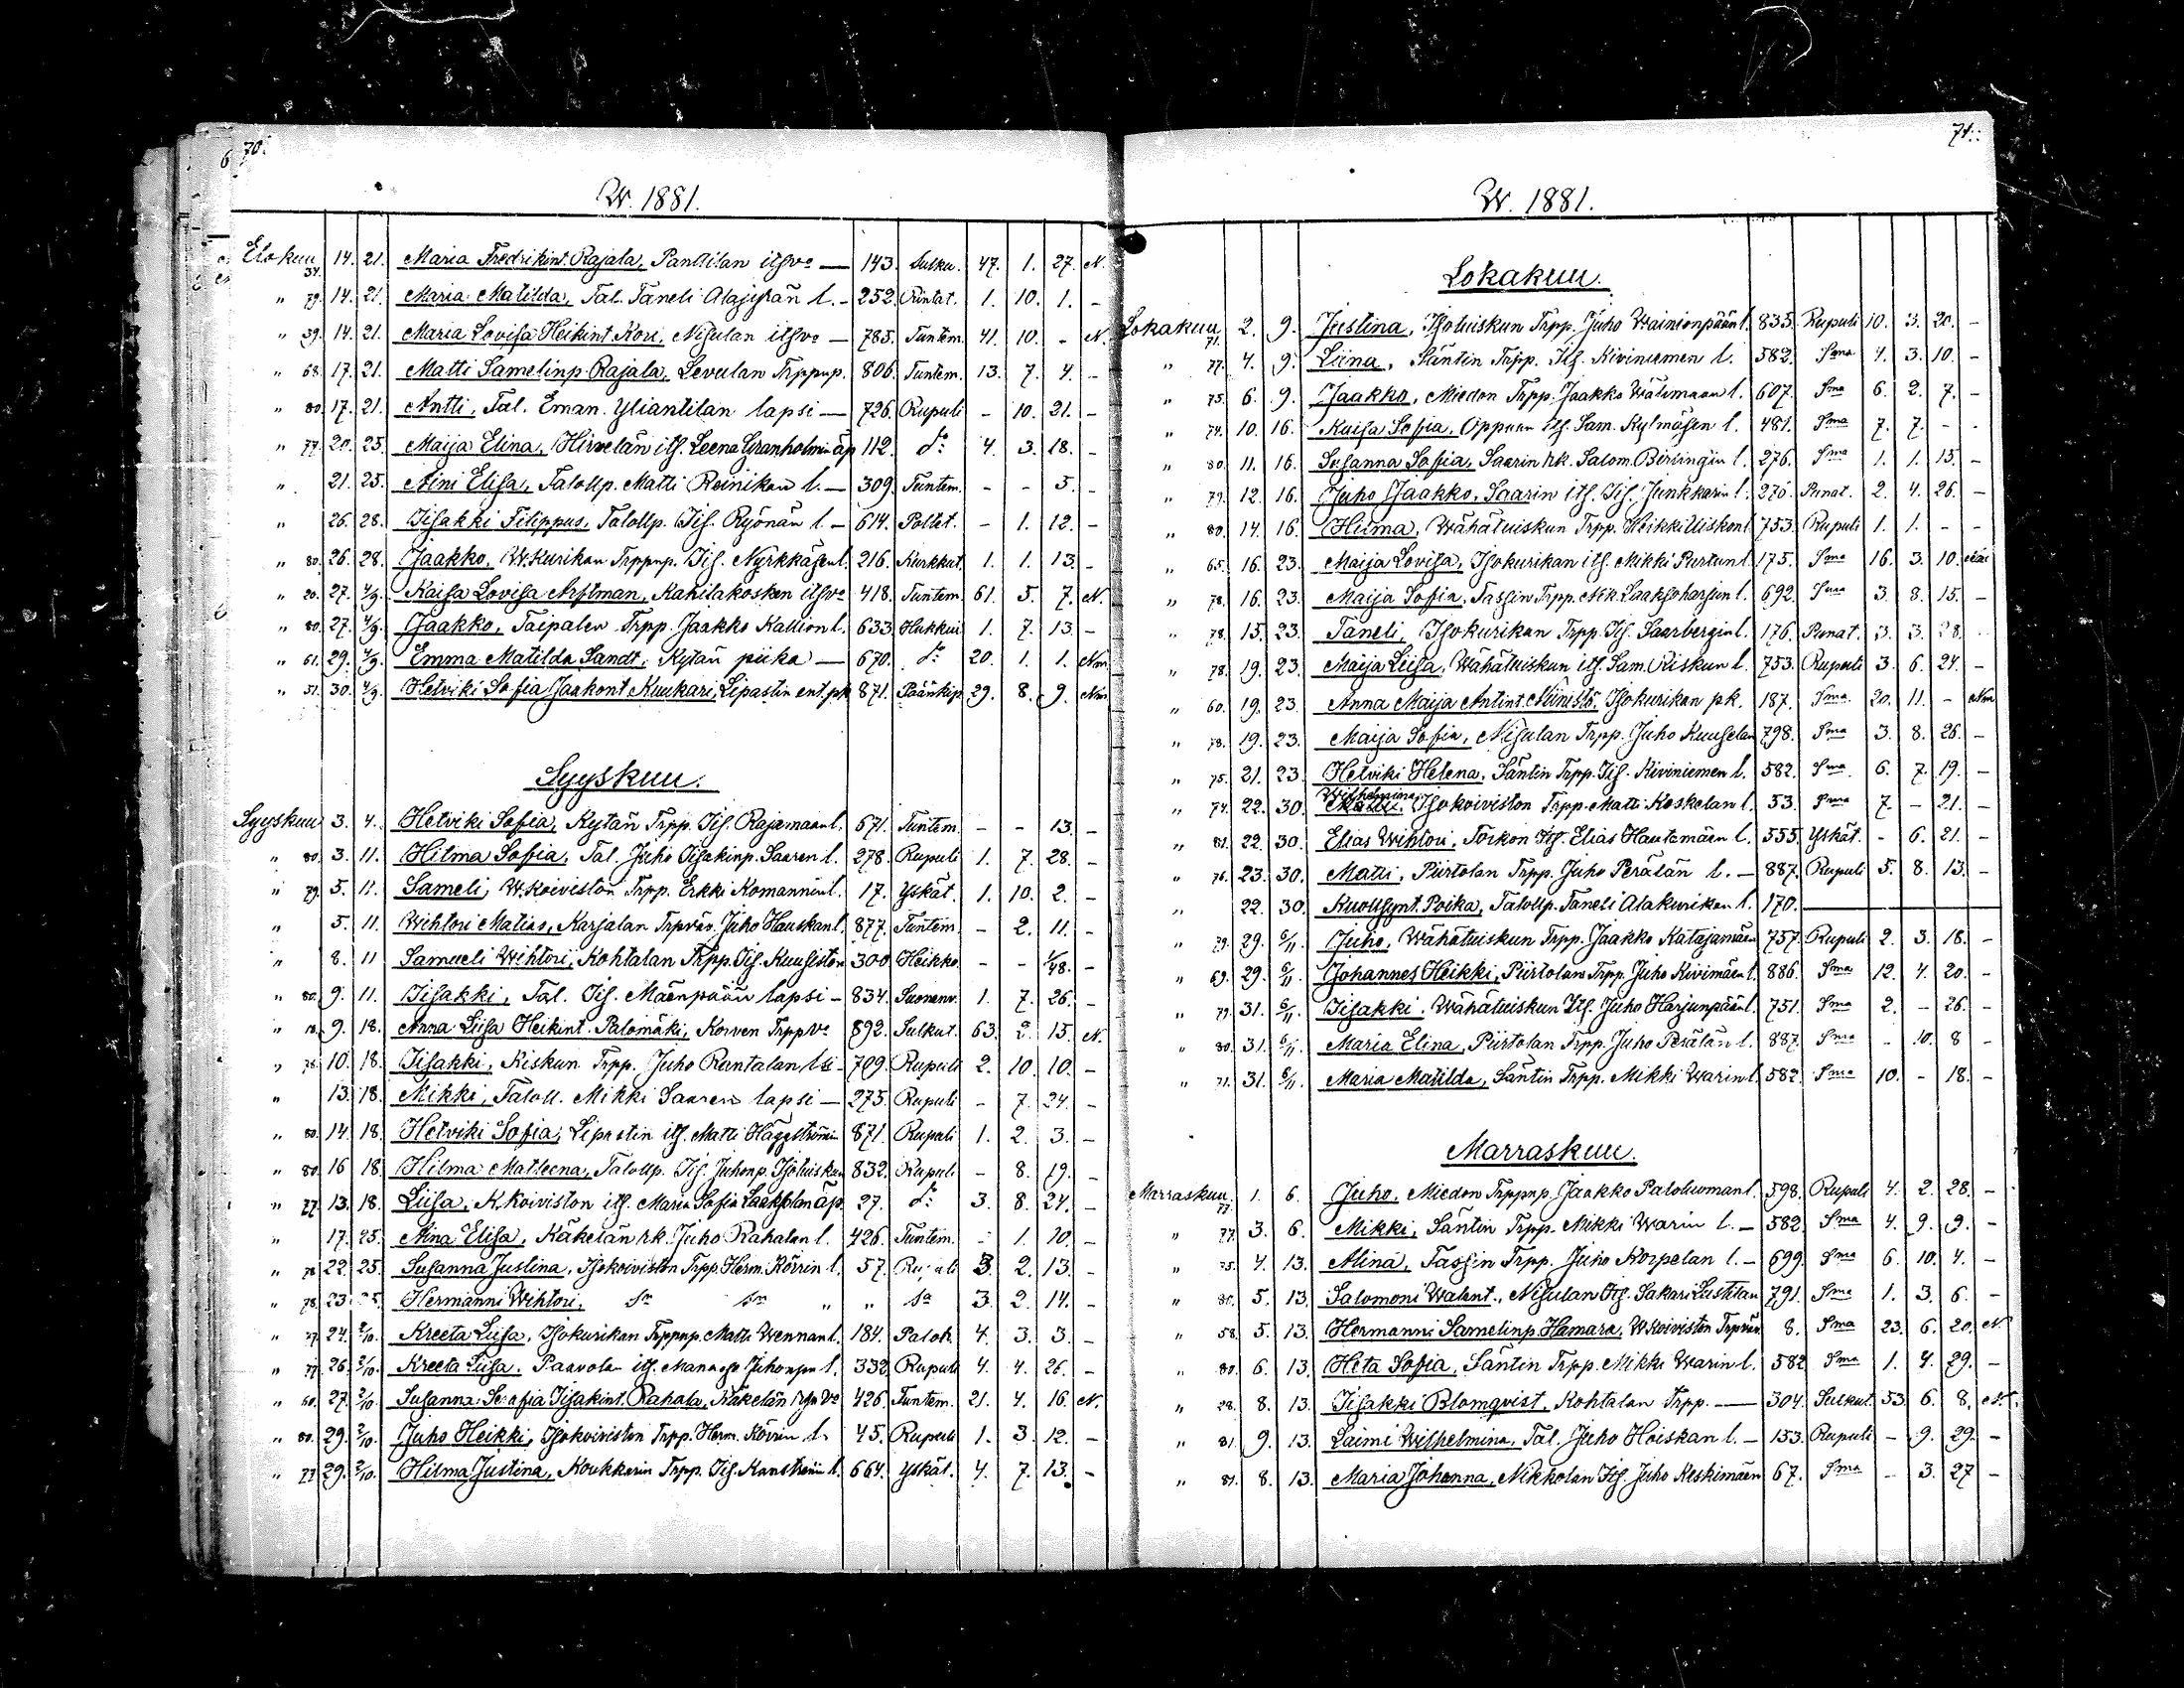 70.
W. 1881.
Elokuu 34. 14. 21. Maria Fredrikint. Rajala, Panttilan itsv:o — 143. Sulku. 47. 1. 27. N.
" 79. 14. 21. Maria Matilda, Tal. Taneli Alajyrän l. - 252. Rintat. 1. 10. 1. -
" 39. 14. 21. Maria Lovisa Heikint. Kori, Nisulan itsv:o — 785. Tuntem. 41. 10. - N.
" 68. 17. 21. Matti Samelinp. Rajala, Levulan Trppnp. 806. Tuntem. 13. 7. 4. -
" 80. 17. 21. Antti, Tal. Eman. Yliantilan lapsi — 726. Rupuli - 10. 21. -
" 77. 20. 25. Maija Elina, Hirvelän its. Leena Granholmin äp 112. d:o 4. 3. 18. -
" 21. 25. Aini Elisa, Talollp. Matti Reinikan l. — 309. Tuntem. - - 3. -
" 26. 28. Iisakki Filippus, Talollp. Iis. Ryönän l. - 614. Poltet. - 1. 12. -
" 80. 26. 28. Jaakko, W.Kurikan Trppnp. Iis. Nyrkkäsen l. 216. Kurkkut. 1. 1. 13. -
" 20. 27. 4/9. Kaisa Lovisa Arflman, Kahilakosken itsv:o 418. Tuntem. 61. 5. 7. N.
" 80. 27. 4/9. Jaakko, Taipalen Trpp. Jaakko Kallion l. 633. Hukkui 1. 7. 13. -
" 61. 29. 4/9. Emma Matilda Sandt, Kytän piika — 670. d:o 20. 1. 1. Nm
" 51. 30. 4/9. Hetviki Sofia Jaakont Kuukari, Lipastin ent. pk 871. Päänkip. 29. 8. 9. Nm
Syyskuu.
Syyskuu 3. 4. Hetviki Sofia, Kytän Trpp. Iis. Rajamaan l. 671. Tuntem. - - 13. -
" 80. 3. 11. Hilma Sofia, Tal. Juho Iisakinp. Saaren l. 278. Rupuli 1. 7. 28. -
" 79. 5. 11. Sameli, W.Koiviston Trpp. Erkki Komannin l. 17. Yskät. 1. 10. 2. -
" 5. 11. Wihtori Matias, Karjalan Trpväv. Juho Hauskan l. 877. Tuntem. - 2. 11. -
" 8. 11 Samueli Wihtori, Kohtalan Trpp. Iis. Kuusiston 300 Heikko. - - 1/48. -
" 80. 9. 11. Iisakki, Tal. Iis. Mäenpään lapsi - 834. Suonenv. 1. 7. 26. -
" 18. 9. 18. Anna Liisa Heikint. Palomäki, Korven Trppv:o 892. Sulkut. 63. 2. 15. N.
" 78. 10. 18. Iisakki, Kiskun Trpp. Juho Rantalan lsi - 709. Rupuli 2. 10. 10. -
" 13. 18. Mikki, Taloll. Mikki Saaren lapsi — 275. Rupuli - 7. 24. -
" 80. 14. 18. Hetviki Sofia, Lipastin its. Matti Häggströmin 871. Rupuli 1. 2. 3. -
" 80. 16 18. Hilma Matleena, Talollp. Iis. Juhonp. Isotuiskun 832. Rupuli - 8. 19. -
" 77. 13. 18. Liisa, K.Koiviston its. Maria Sofia Laaksolan äp. 27. d:o 3. 8. 24. -
" 17. 25. Aina Elisa, Käkelän rk. Juho Rahalan l. 426. Tuntem. - 1. 10. -
" 78 22. 25. Susanna Justina, Isokoiviston Trpp. Herm. Körrin l. 57. Rupuli 3. 2. 13. -
" 78. 23. 25. Hermanni Wihtori, Sn sn " " sa 3. 2. 14. -
" 77. 24. 2/10. Kreeta Liisa, Isokurikan Trppnp. Matti Wennan l. 184. Paloh. 4. 3. 3. -
" 77. 26. 2/10. Kreeta Liisa, Paavola its. Manasse Juhonpn l. 332. Rupuli 4. 4. 26. -
" 60. 27. 2/10. Susanna Serafia Iisakint. Rahala, Käkelän v:o 426. Tuntem. 21. 4. 16. N.
" 80. 29. 2/10. Juho Heikki, Isokoiviston Trpp. Herm. Körrin l. 45. Rupuli 1. 3. 12. -
" 77 29. 2/10. Hilma Justina, Koukkarin Trpp. Iis. Kanströmin l. 664. Yskät. 4. 7. 13. -
71.
W. 1881.
Lokakuu.
Lokakuu 71. 2. 9. Justina, Isotuiskun Trpp. Juho Wainionpään l. 835. Rupuli 10. 3. 20. -
" 77. 4. 9. Liina, Säntin Trpp. Iis. Kiviniemen l. 582. Sma 4. 3. 10. -
" 75. 6. 9. Jaakko, Miedon Trpp. Jaakko Wälimaan l. 607. Sma 6. 2. 7. -
" 74. 10. 16. Kaisa Sofia, Oppaan its. Sam. Kylmäsen l. 481. Sma 7. 7. - -
" 80. 11. 16. Susanna Sofia, Saarin rk. Salom. Birlingin l. 276. Sma 1. 1. 13. -
" 79. 12. 16. Juho Jaakko, Saarin its. Iis. Junkkarin l. 276. Punat. 2. 4. 26. -
" 80. 14. 16. Hilma, Wähätuiskun Trpp. Heikki Uiskon l 753. Rupuli 1. 1. - -
" 65. 16. 23. Maija Lovisa, Isokurikan its. Mikki Purtun l. 175. Sma 16. 3. 10.
" 78. 16. 23. Maija Sofia, Tassin Trpp. Mik. Laaksoharjun l. 692. Sma 3. 8. 15. -
" 78. 15. 23. Taneli, Isokurikan Trpp. Iis. Saarbergin l. 176. Punat. 3. 3. 28. -
" 78. 19. 23. Maija Liisa, Wähätuiskun its. Sam. Riskun l. 753. Rupuli 3. 6. 24. -
" 60. 19. 23. Anna Maija Antint. Niinistö, Isokurikan pk. 187. Sma. 20. 11. - Nm
" 78. 19. 23. Maija Sofia, Nisulan Trpp. Juho Kuuselan 798. Sma 3. 8. 26. -
" 75. 21. 23. Hetviki Helena, Säntin Trpp. Iis. Kiviniemen l. 582. Sma. 6. 7. 19. -
Wilhelmina
" 74. 22. 30. Isokoiviston Trpp. Matti Koskelan l. 53. Sma 7. - 21. -
" 81. 22. 30. Elias Wihtori, Törkön Its. Elias Hautamäen l. 555. Yskät. - 6. 21. -
" 76. 23. 30. Matti, Piirtolan Trpp. Juho Perälän l. — 887. Rupuli 5. 8. 13. -
" 22. 30. Kuollsynt. Poika, Talollp. Taneli Alakurikan l. 170. —
" 79. 29. 6/11. Juho, Wähätuiskun Trpp. Jaakko Katajamäen 757. Rupuli 2. 3. 18. -
" 69. 29. 6/11. Johannes Heikki, Piirtolan Trpp. Juho Kivimäen l. 886. Sma 12. 4. 20. -
" 79. 31. 6/11. Iisakki, Wähätuiskun Its. Juho Harjunpään l. 751. Sma 2. - 26. -
" 80. 31. 6/11. Maria Elina, Piirtolan Trpp. Juho Perälän l. 887. Sma - 10. 8 -
" 71. 31. 6/11. Maria Matilda, Säntin Trpp. Mikki Warin l. 582. Sma 10. - 18. -
Marraskuu.
Marraskuu 77. 1. 6. Juho, Miedon Trppnp. Jaakko Paloluoman l. 598. Rupuli 4. 2. 28. -
" 77. 3. 6. Mikki, Säntin Trpp. Mikki Warin l. — 582. Sma 4. 9. 9. -
" 75. 4. 13. Alina, Tassin Trpp. Juho Korpelan l. — 699. Sma 6. 10. 4. -
" 80. 5. 13. Salomoni Walent., Nisulan Its. Sakari Lustilan 791. Sma 1. 3. 6. -
" 58. 5. 13. Hermanni Samelinp. Hamara, W.Koiviston Trpväv 8. Sma 23. 6. 20. N
" 80. 6. 13. Heta Sofia, Säntin Trpp. Mikki Warin l. 582 Sma 1. 4. 29. -
" 28. 8. 13. Iisakki Blomqvist, Kohtalan Trpp. — 304. Sulkut. 53. 6. 8. N.
" 81. 9. 13. Laimi Wilhelmina, Tal. Juho Hoiskan l. — 153. Rupuli - 9. 29. -
" 81. 8. 13. Maria Johanna, Nikkolan Its. Juho Keskimäen 67. Sma - 3. 27 -